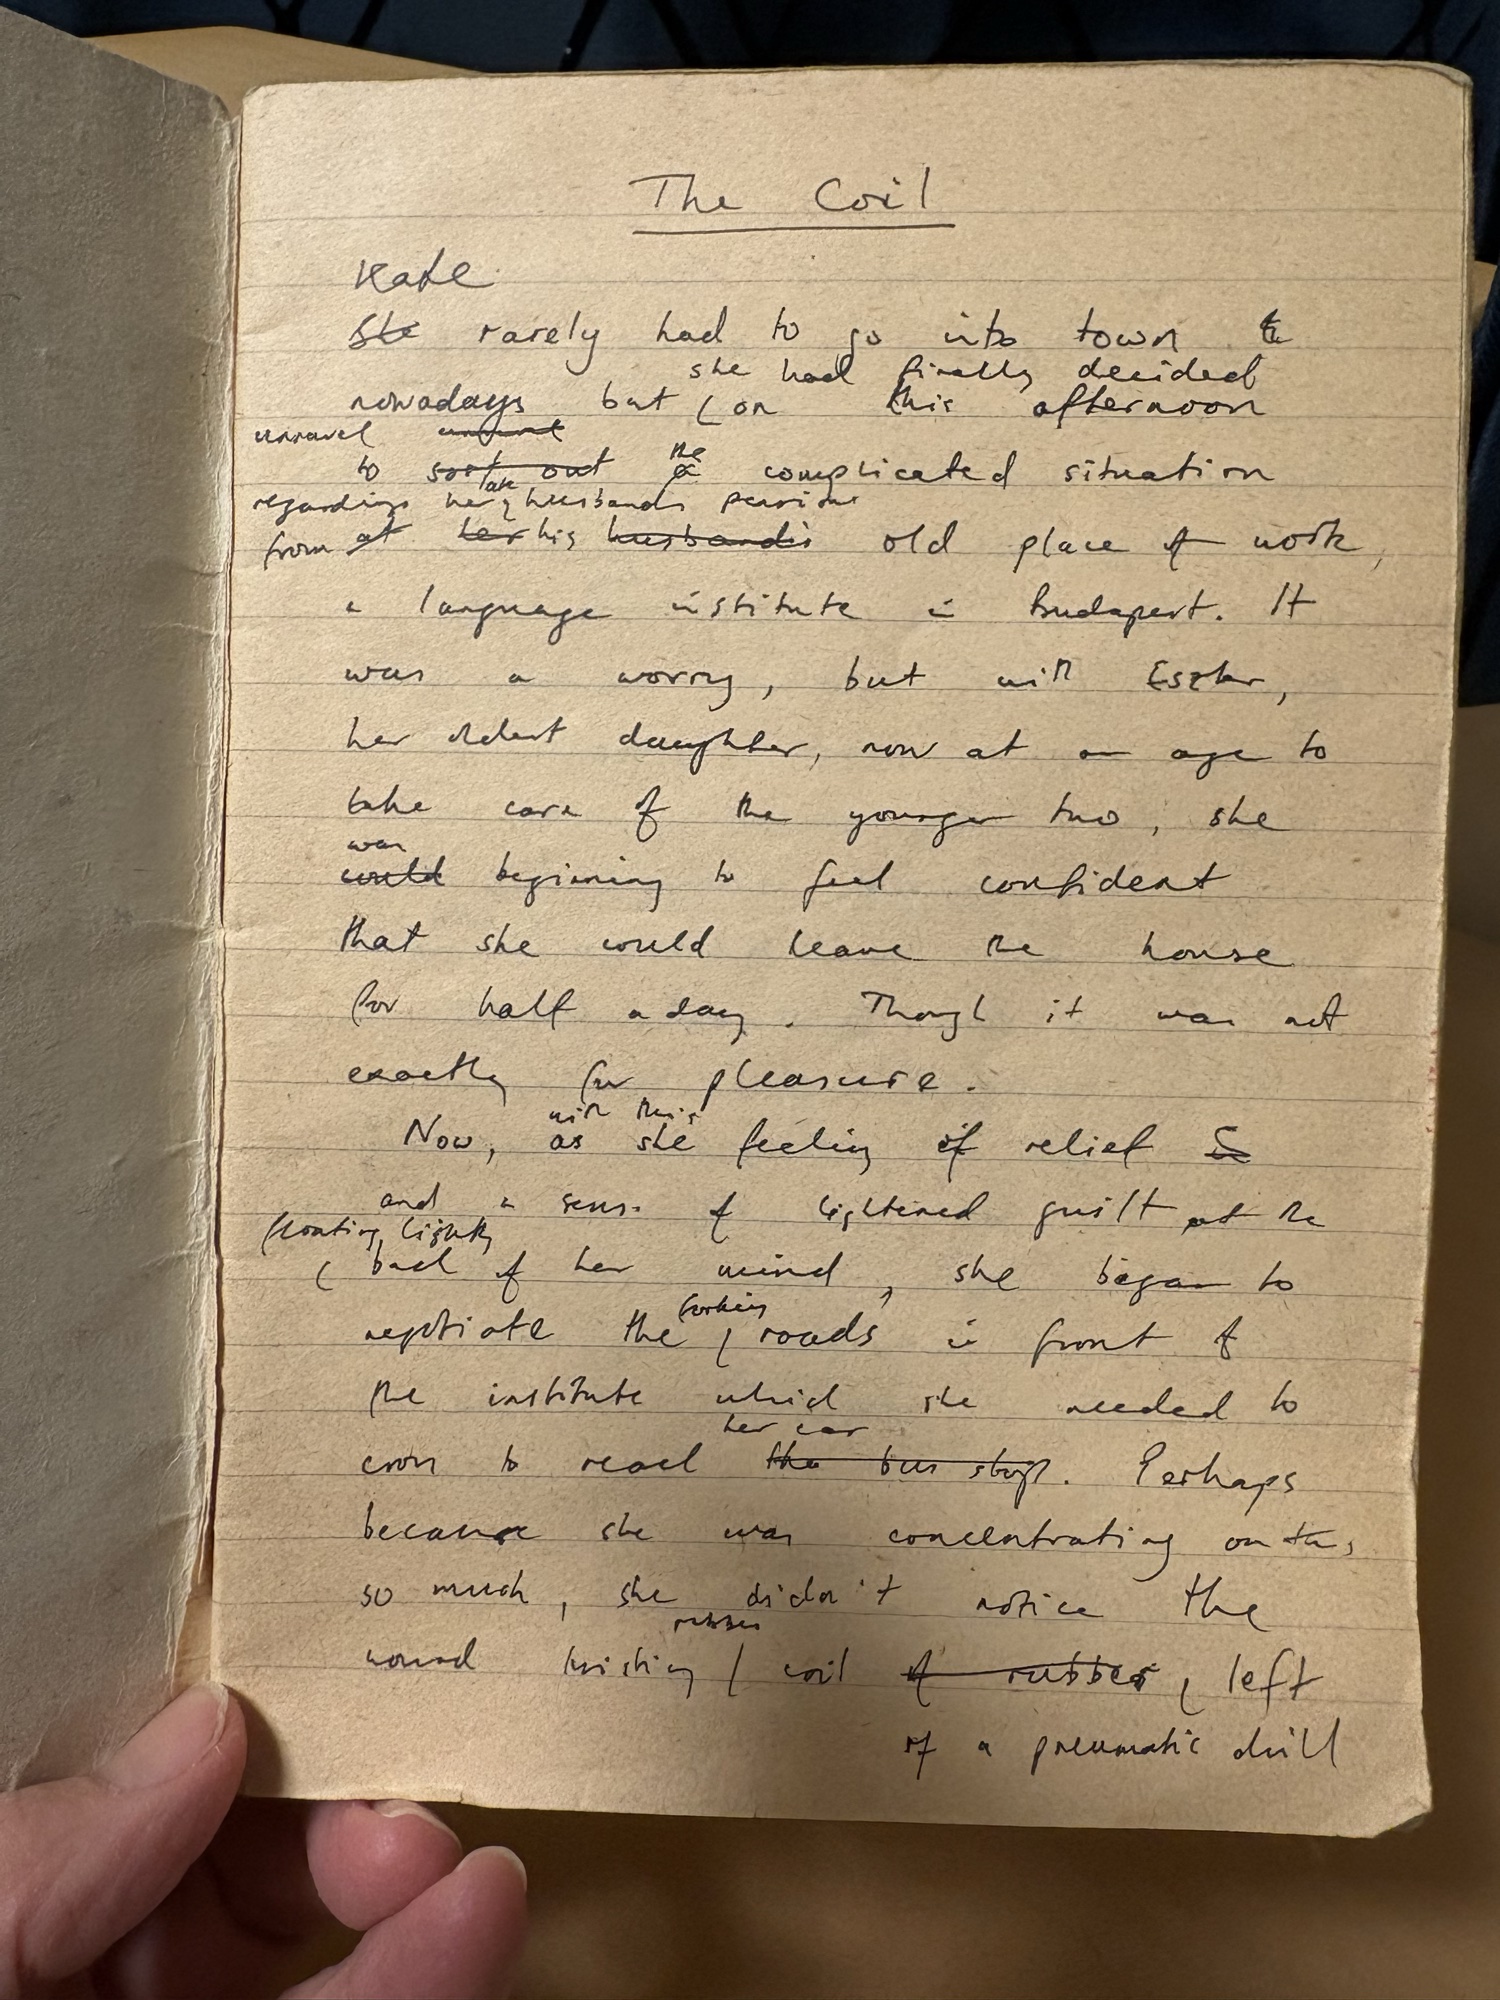 The Coil
Kate
She rarely had to go into town to
she had finally decided
nowadays, but on this afternoon
unravel
to sort out the a complicated situation
regarding her late husband's pension
from at her his husband's old place of work,
a language institute in Budapest. It
was a worry, but with Eszter,
her oldest daughter, now at an age to
take care of the younger two, she
was
could beginning to feel confident
that she could leave the house
for half a day. Though it was not
exactly for pleasure.
with this
Now, as she feeling of relief
and a sense of lightened guilt at the
floating lightly
back of her mind, she began to
forking
negotiate the roads in front of
the institute which she needed to
her car
cross to reach the bus stop. Perhaps
because she was concentrating on this
so much, she didn't notice the
rubber
wound twisting coil of rubber, left
of a pneumatic drill